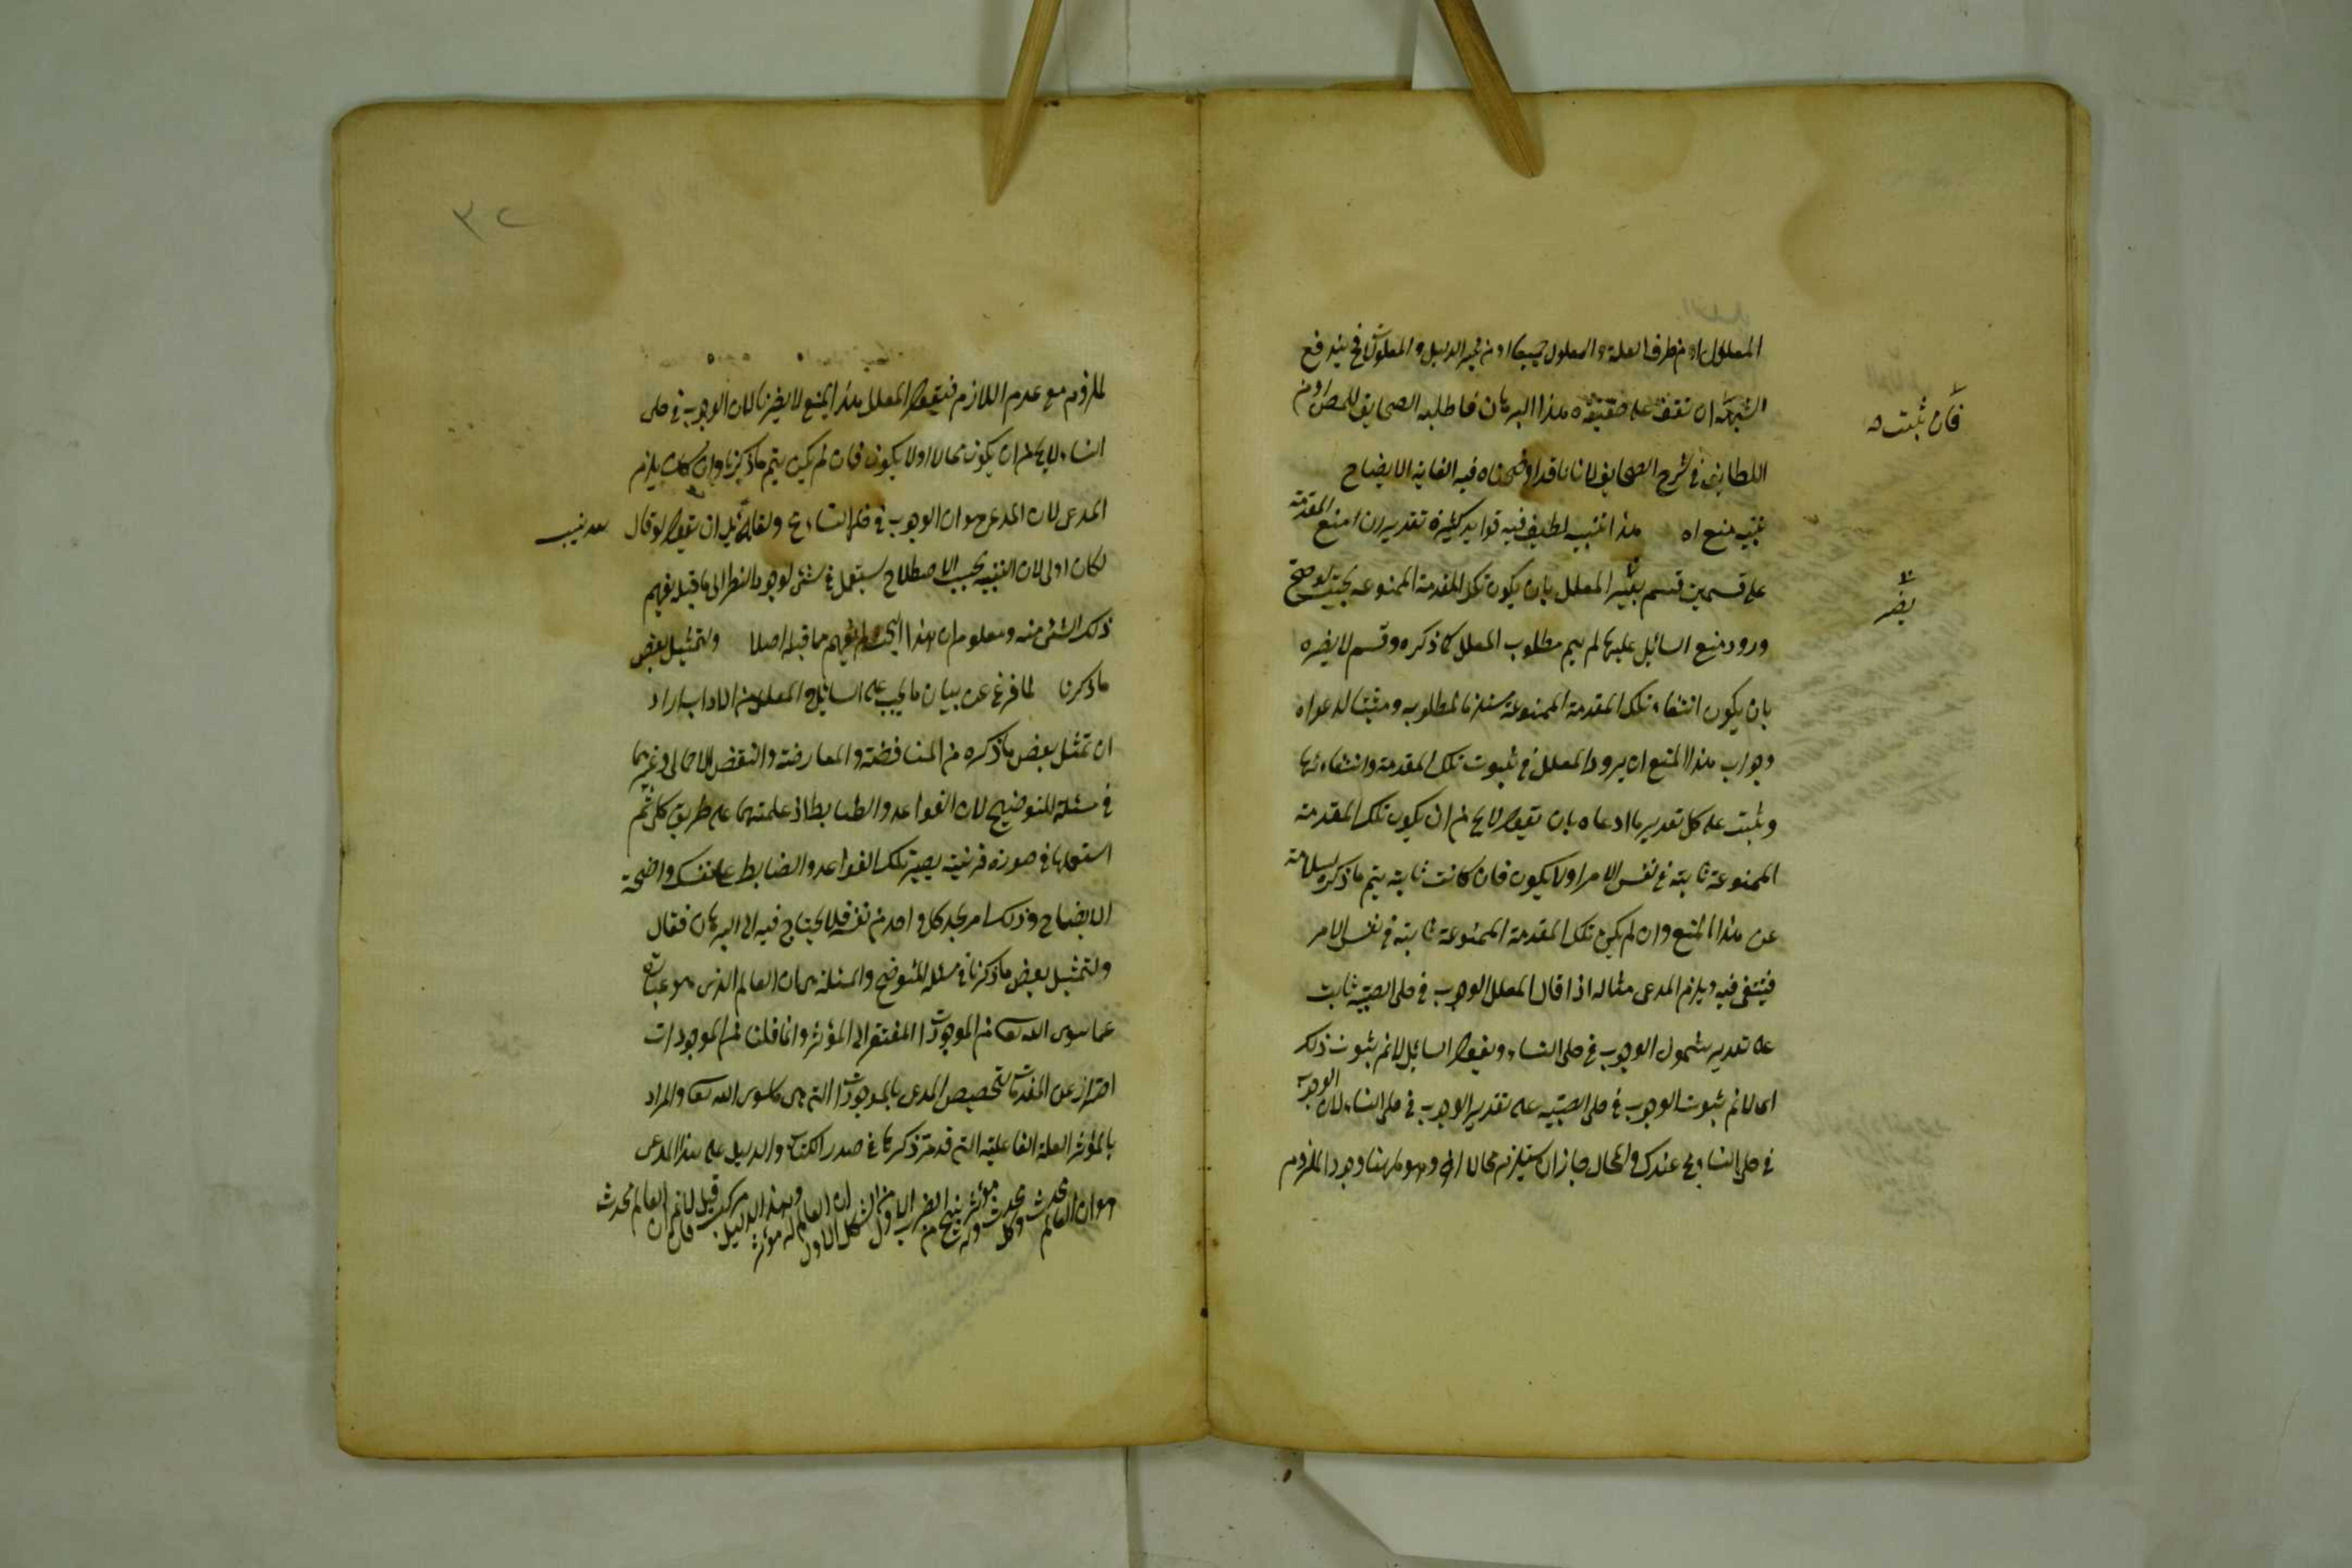 المعلول او من طرف العلة والمعلول جميعا او من غير الدليل والمعلول فح يندفع
الشبهة ان تقف على حقيقة هذا البرهان فاطلبه الصحايف للمص او من
فان ثبت
اللطايف في شرح الصحايف لانا قد اوضحناه فيه الغاية الايضاح
تنبيه منع اه هذا تنبيه لطيف فيه فوايد كثيرة تقديره ان منع المقدمة
على قسمين قسم يضر المعلل بان يكون تلك المقدمة الممنوعة بحيث لو صح
يضر
ورود منع السائل عليها لم يتم مطلوب المعلل كما ذكره وقسم لا يضره
بان يكون انتفاء تلك المقدمة الممنوعة مستلزما لمطلوبه ومثبتا لدعواه
وجواب هذا المنع ان يردد المعلل في ثبوت تلك المقدمة وانتفاءها
ويثبت على كل تقدير ما ادعاه بان يقول لا يخ من ان يكون تلك المقدمة
الممنوعة ثابتة في نفس الامر او لا يكون فان كانت ثابتة يتم ما ذكره لسلامته
عن هذا المنع وان لم يكن تلك المقدمة الممنوعة ثابتة في نفس الامر
فينتفى فيه ويلزم المدعى مثاله اذا قال المعلل الوجوب في حلى الصبية ثابت
على تقدير شمول الوجوب في حلى النساء ويقول السائل لانم ثبوت ذلك
اى لانم ثبوت الوجوب في حلى الصبية على تقدير الوجوب في حلى النساء لان الوجوب
في حلى النساء مح عندك والمحال جاز ان يستلزم محالا اخر وهو ههنا وجود الملزوم
٣٢
الملزوم مع عدم اللازم فيقول المعلل هذا المنع لا يضرنا لان الوجوب في حلى
النساء لا يخ من ان يكون محالا او لا يكون فان لم يكن يتم ما ذكرنا وان كان يلزم
المدعى لان المدعى هو ان الوجوب في حلى النساء مح ولقائل ان يقول لو قال
لكان اولى لان التنبيه بحسب الاصطلاح يستعمل في شئ لو جرد النظر الى ما قبله يفهم
ذلك الشئ منه ومعلوم ان هذا البحث لم يفهم مما قبله اصلا ولتمثيل بعض
ما ذكرنا لما فرغ عن بيان ما يجب على السائل والمعلل من الاداب اراد
ان يمثل بعض ما ذكره من المناقضة والمعارضة والنقض الاجمالى وغيرهما
في مسئلة للتوضيح لان القواعد والضابط اذا علمتهما على طريق كلى ثم
استعملها في صورة جزئية يصير تلك القواعد والضابط عندك واضحة
الايضاح وذلك امر يجد كل واحد من نفسه فلا يحتاج فيه الى البرهان فقال
ولتمثيل بعض ما ذكرنا في مسئلة للتوضيح والمسئلة هى ان العالم الذى هو عبارة
عما سوى الله تعا من الموجودات المفتقر الى المؤثر وانما قلنا من الموجودات
احتراز عن المعدومات لتخصيص المدعى بالموجودات التى هى ما سوى الله تعا والمراد
بالمؤثر العلة الفاعلية التى قد مر ذكرها في صدر الكتاب والدليل على هذا المدعى
هو ان العالم محدث وكل محدث وله مؤثر ينتج من الضرب الاول من الشكل الاول ان العالم له مؤثر وهذا الدليل مركب فان قيل لانم ان العالم محدث